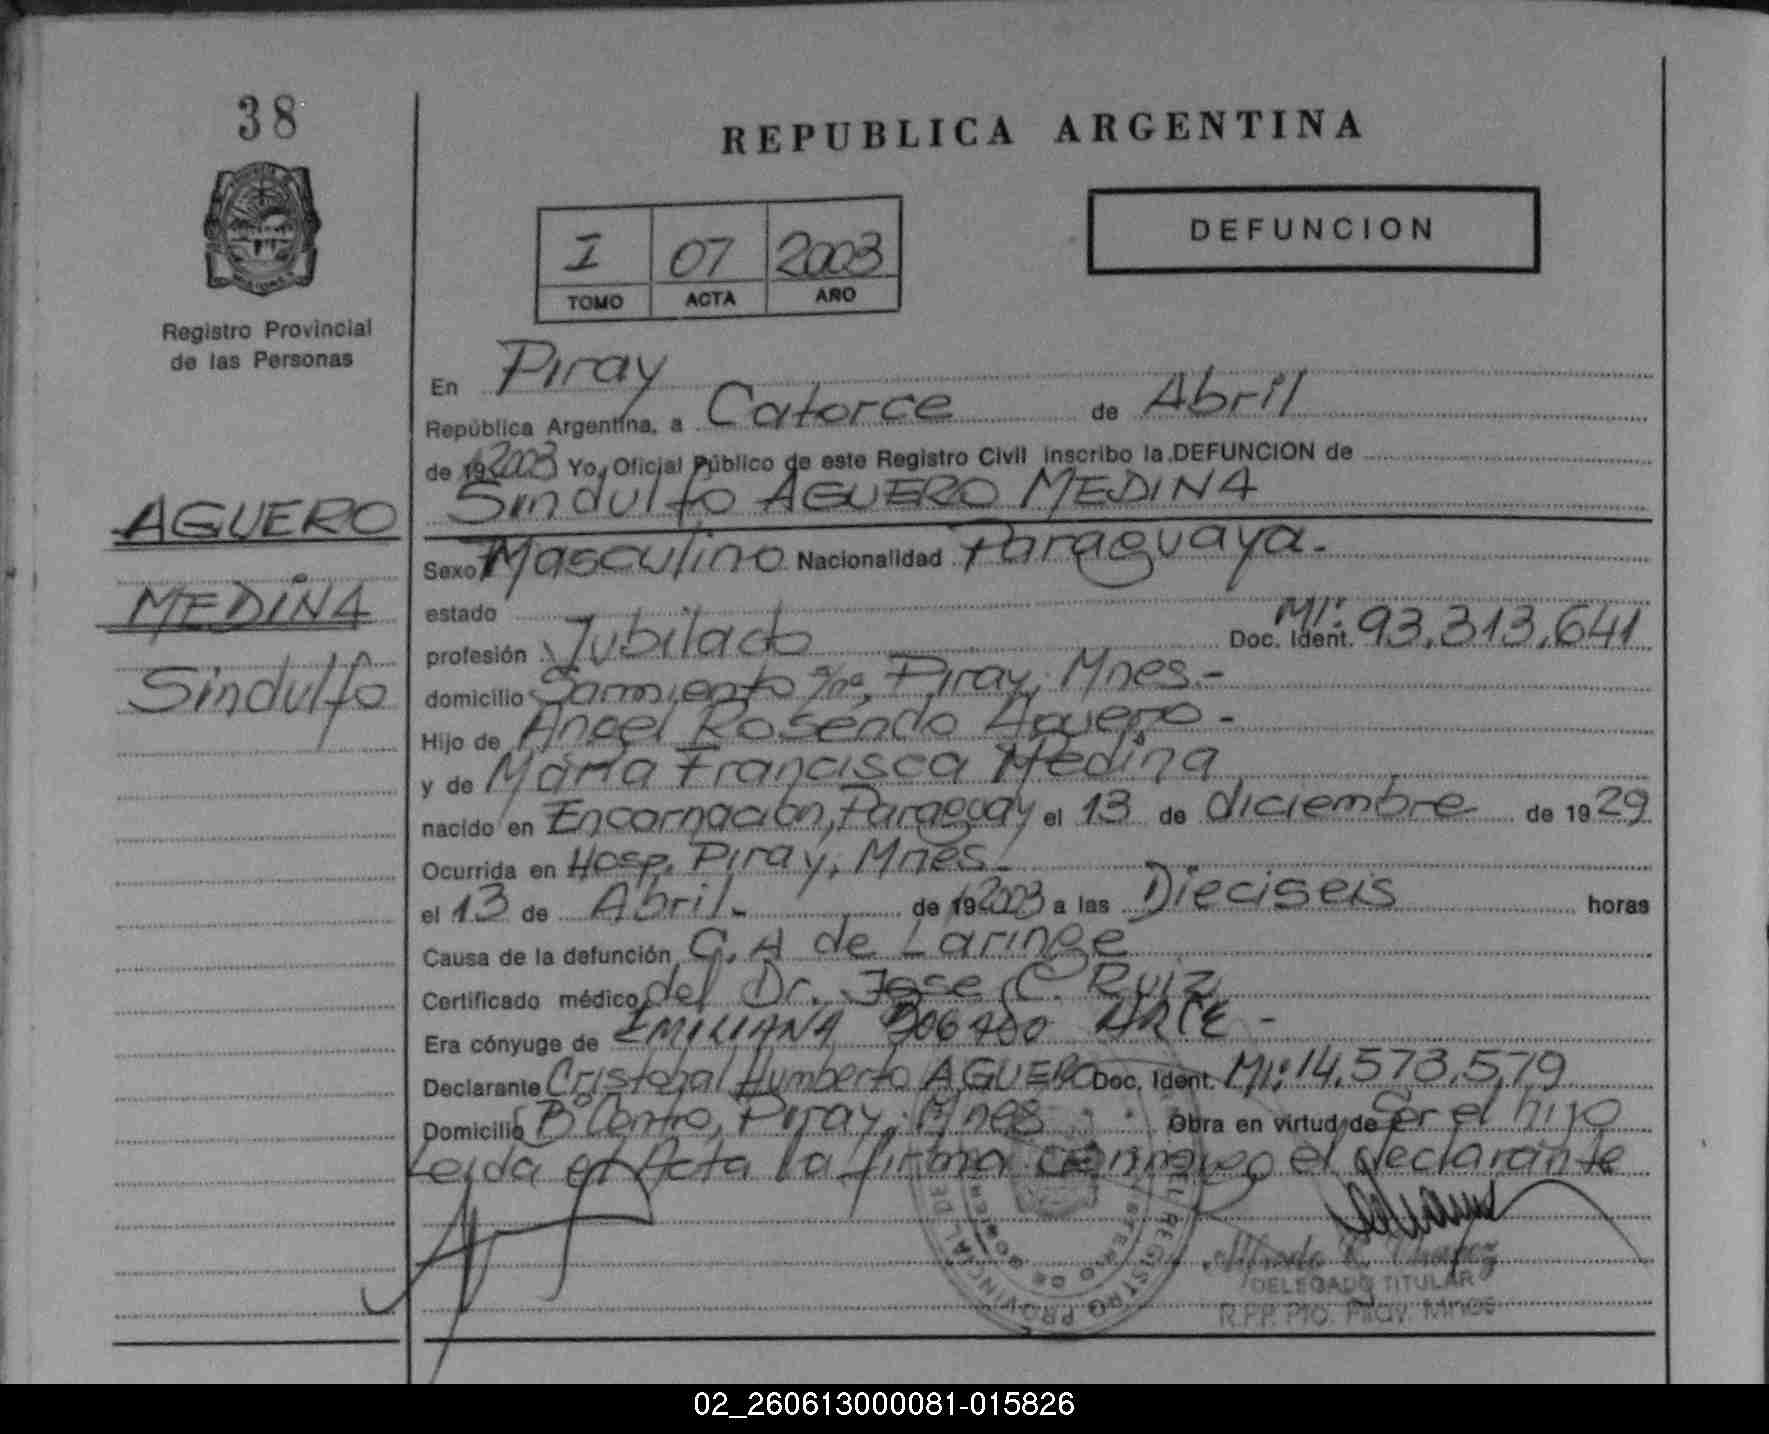 38
REPUBLICA ARGENTINA
DEFUNCION
I 07 2003
TOMO ACTA AÑO
Registro Provincial
de las Personas
AGUERO
MEDINA
Sindulfo
En Piray
República Argentina, a Catorce de Abril
de 19 2003 Yo, Oficial Público de este Registro Civil inscribo la DEFUNCION de
Sindulfo AGUERO MEDINA
Sexo Masculino Nacionalidad Paraguaya.-
estado
profesión Jubilado Doc. Ident. MI: 93,313,641
domicilio Sarmiento s/nº, Piray, Mnes.-
Hijo de Angel Rosendo Aguero.-
y de María Francisca Medina
nacido en Encarnación, Paraguay el 13 de diciembre de 1929
Ocurrida en Hosp. Piray, Mnes.-
el 13 de Abril.- de 19 2003 a las Dieciseis horas
Causa de la defunción C.A de Laringe
Certificado médico del Dr. Jose C. Ruiz
Era cónyuge de EMILIANA BOGADO ARCE -
Declarante Cristobal Humberto AGUERO Doc. Ident. MI: 14,573,579
Domicilio Bº Centro, Piray, Mnes Obra en virtud de Ser el hijo
Leida el Acta la firma conmigo el declarante
REGISTRO PROVINCIAL DE
DELEGADO TITULAR
R.P.P. Pto. Piray. Mnes
02_260613000081-015826